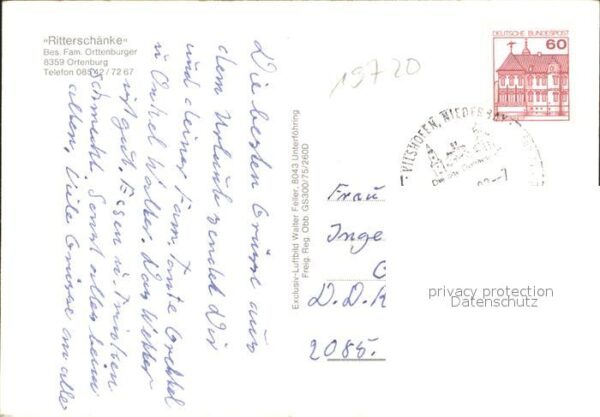 "Ritterschänke"
Bes. Fam. Orttenburger
8359 Ortenburg
Telefon 085 42 / 72 67
Die besten Grüsse aus
dem Urlaub sendet Dir
und deiner Fam. Tante
u. Onkel Walter. Das Wetter
ist gut. Essen u. Trinken
schmeckt. Sonst alles beim
alten, Viele Grüsse an alle
Exclusiv-Luftbild Walter Feiler, 8043 Unterföhring
Freig. Reg. Obb. GS300/75/260D
19720
DEUTSCHE BUNDESPOST
60
VILSHOFEN, NIEDERBAY
Frau
Inge
D.D.R
2085.
privacy protection
Datenschutz